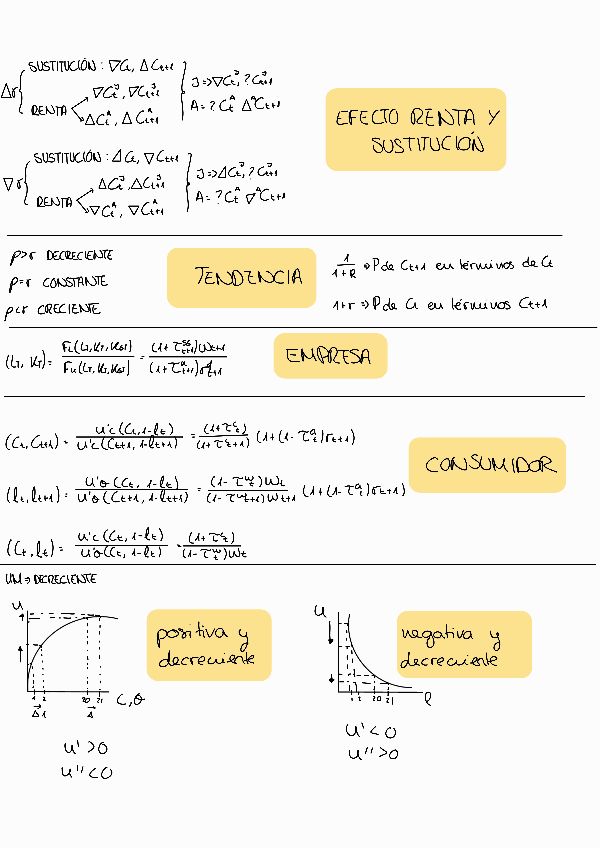 Δr
SUSTITUCIÓN: ∇Ct, ΔCt+1
RENTA
∇Ct^J, ∇Ct+1^J
ΔCt^A, ΔCt+1^A
J ⇒ ∇Ct^J, ? Ct+1^J
A = ? Ct^A Δ^A Ct+1
EFECTO RENTA Y
SUSTITUCIÓN
∇r
SUSTITUCIÓN: ΔCt, ∇Ct+1
RENTA
ΔCt^J, ΔCt+1^J
∇Ct^A, ∇Ct+1^A
J ⇒ ΔCt^J, ? Ct+1^J
A = ? Ct^A ∇^A Ct+1
ρ>r DECRECIENTE
ρ=r CONSTANTE
ρ<r CRECIENTE
TENDENCIA
1/(1+R) ⇒ P de Ct+1 en términos de Ct
1+r ⇒ P de Ct en términos Ct+1
EMPRESA
CONSUMIDOR
(Ct, Ct+1) = U'c(Ct, 1-lt) / U'c(Ct+1, 1-lt+1) = (1+τt^c) / (1+τt+1^c) (1+(1-τt^a)rt+1)
(lt, lt+1) = U'θ(Ct, 1-lt) / U'θ(Ct+1, 1-lt+1) = (1-τt^w)Wt / (1-τt+1^w)Wt+1 (1+(1-τt^a)rt+1)
(Ct, lt) = U'c(Ct, 1-lt) / U'θ(Ct, 1-lt) = (1+τt^c) / (1-τt^w)Wt
UM ⇒ DECRECIENTE
U
1 2 20 21
C, θ
Δ1 Δ
positiva y
decreciente
U' > 0
U'' < 0
U
1 2 20 21
l
negativa y
decreciente
U' < 0
U'' > 0